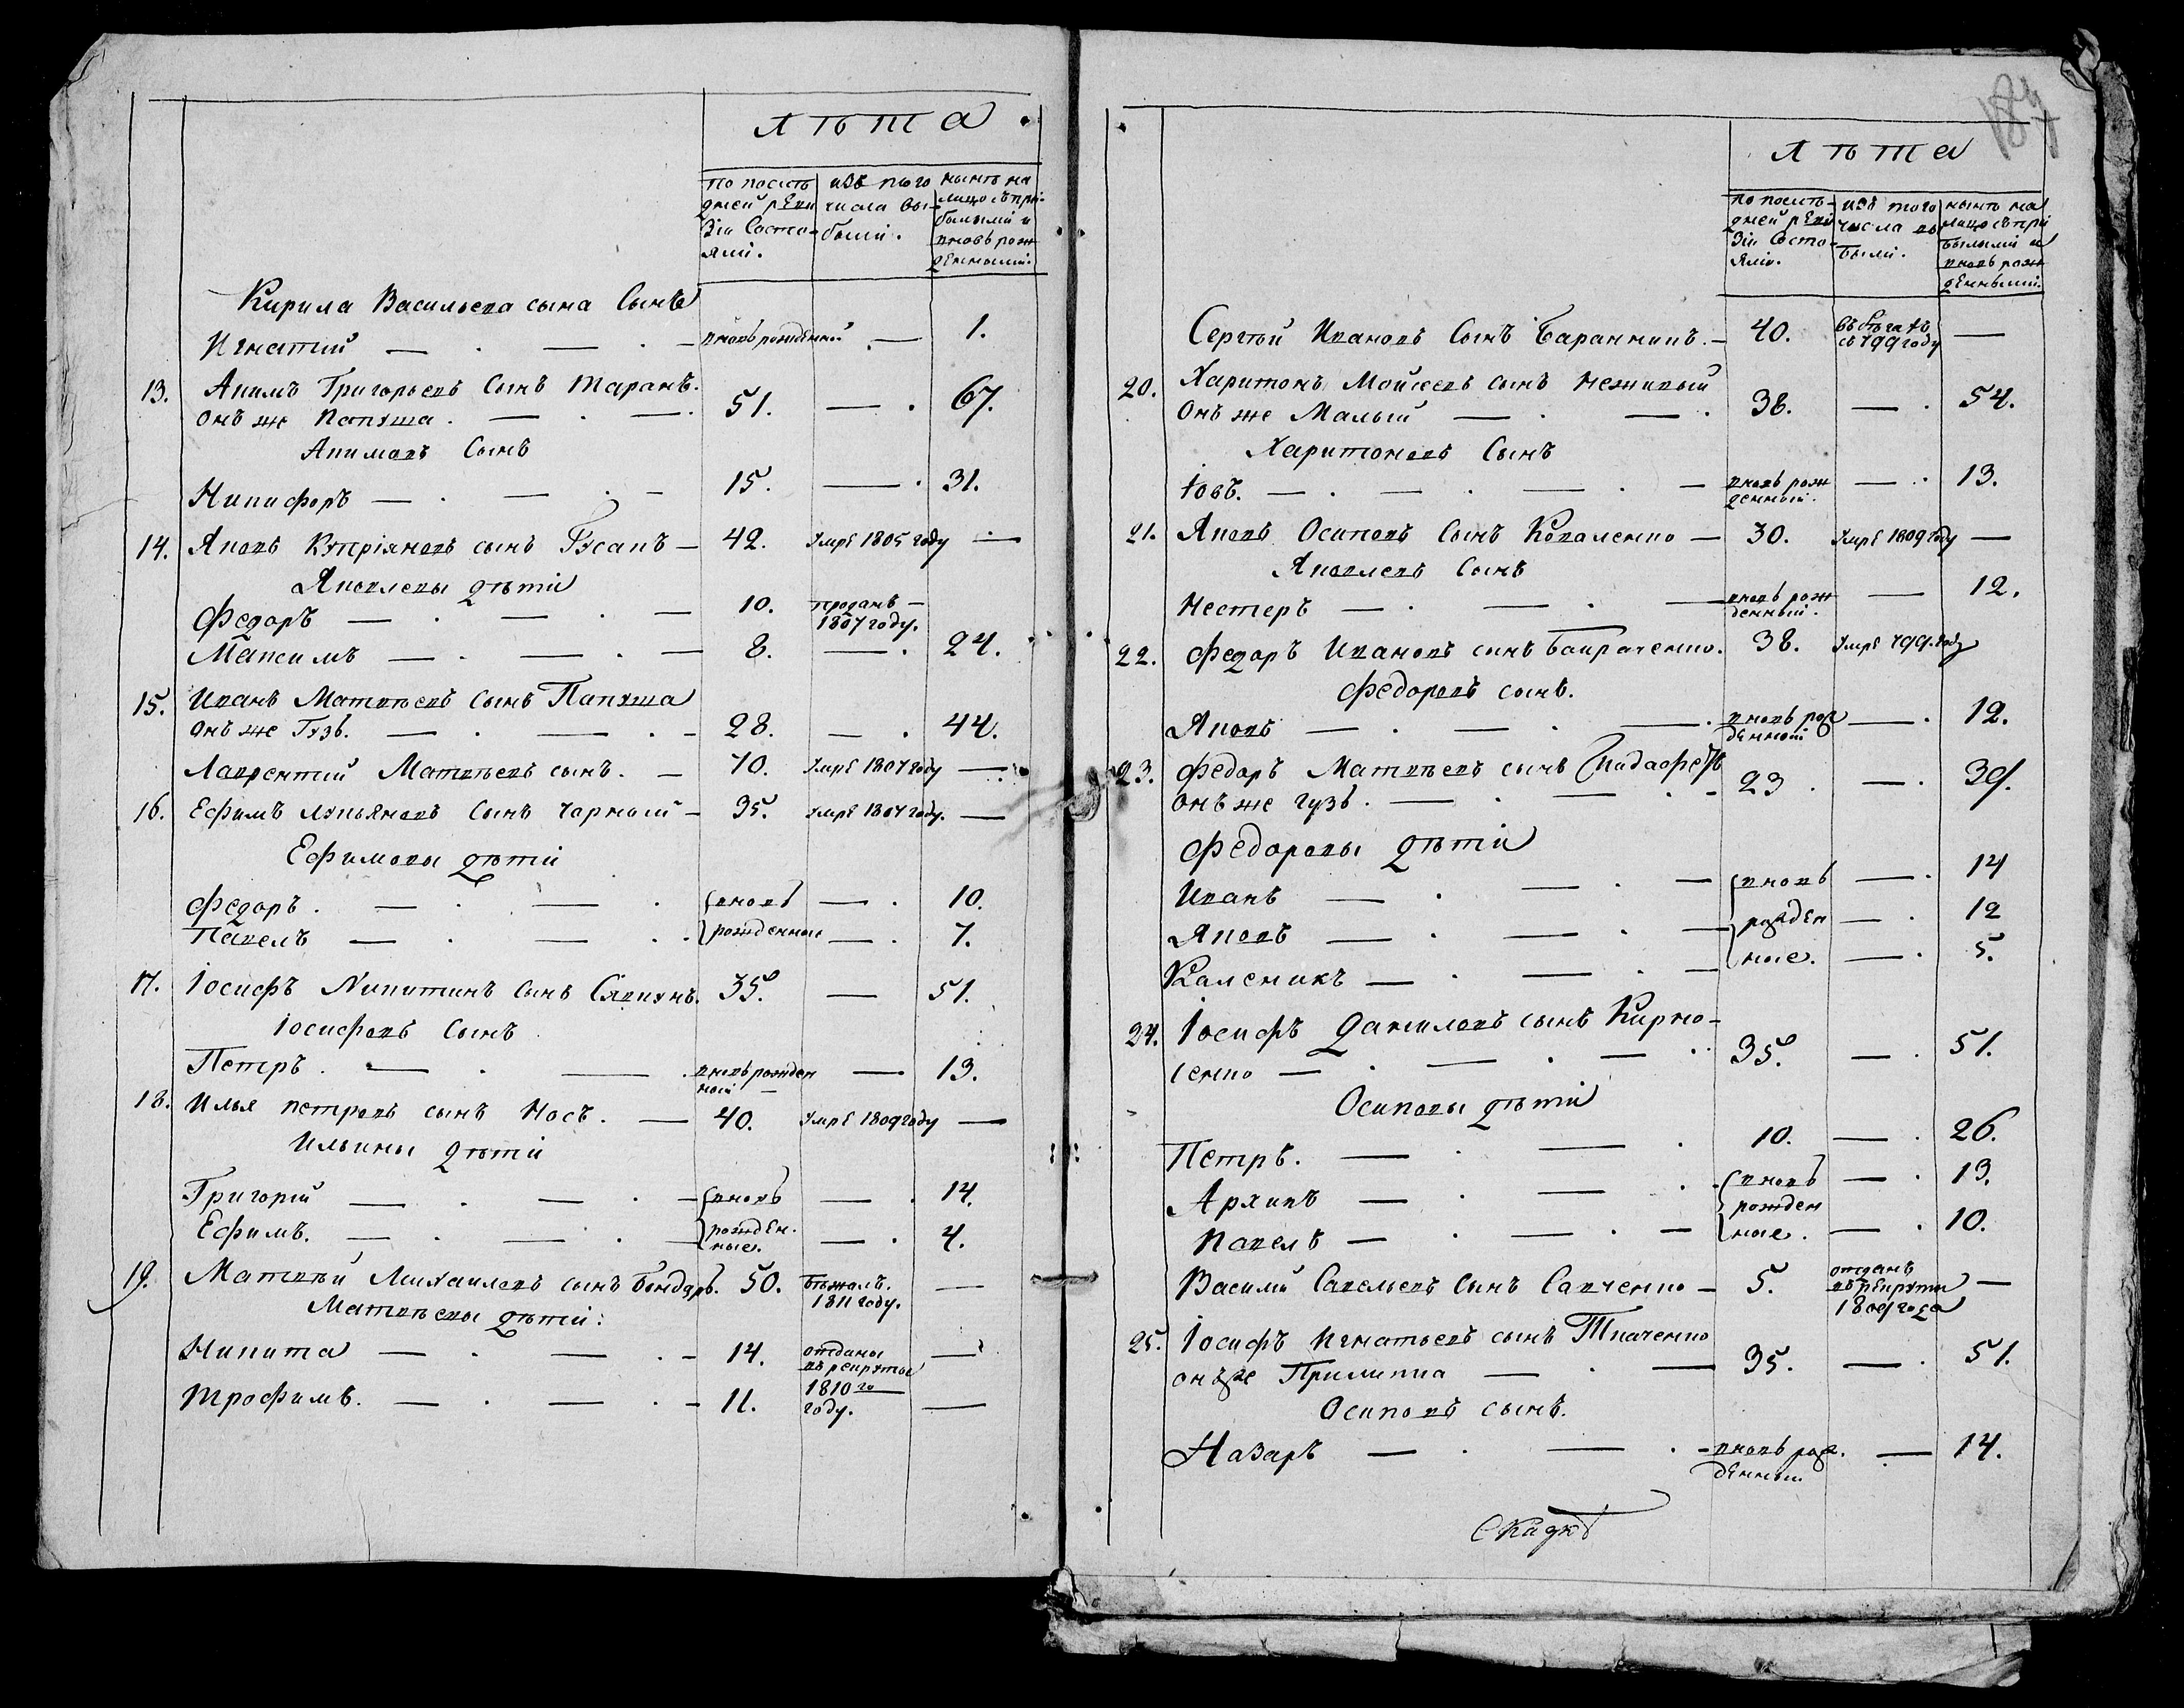 лѣта
по послѣ
дней реви
зіи состо
яли.
изъ того
числа вы
были.
нынѣ на
лицо съ при
былыми и
вновь рож
денными.
Кирила Васильева сына Сынъ
Игнатий — вновь рожденной — 1.
13. Акимъ Григорьевъ Сынъ Таранъ.
онъ же Папуша. — 51. — 67.
Акимовъ Сынъ
Никифоръ — 15. — 31.
14. Яковъ Купріяновъ сынъ Гусакъ — 42. умре 1805 году —
Яковлевы дѣти
Федоръ — 10. проданъ — 1807 году.
Максимъ — 8. — 24.
15. Иванъ Матвѣевъ Сынъ Папуша
онъ же Гузь. — 28. — 44.
Лаврентий Матвѣевъ сынъ. — 70. умре 1807 году —
16. Ефимъ Лукьяновъ Сынъ Чорный — 35. умре 1807 году. —
Ефимовы дѣти
Федоръ. — вновь — 10.
Павелъ — рожденныи — 7.
17. Іосифъ Никитинъ Сынъ 35. — 51.
Іосифовъ Сынъ
Петръ. — вновь рожден
ной — 13.
18. Илья Петровъ сынъ Носъ. — 40. умре 1809 году —
Ильины дѣти
Григорій — вновь — 14.
Ефимъ. — рожден.
ные. — 4.
19. Матвѣй Михаилевъ сынъ Бондарь. 50. бѣжалъ.
1811 году. —
Матвѣевы дѣти:
Никита — 14. отданы
въ рекруты —
Трофимъ. — 11. 1810 го
году. —
187
лѣта
по послѣ
дней реви
зіи Состо
яли.
изъ того
числа вы
были.
нынѣ на
лицо съ при
былыми и
вновь рож
денными.
Сергѣй Ивановъ Сынъ Баранникъ. — 40. въ бѣгахъ
съ 799 году —
20. Харитонъ Мойсеевъ сынъ Неживый
Онъ же Малый — 38. — 54.
Харитоновъ Сынъ
Іовъ. — вновь рож
денный. — 13.
21. Яковъ Осиповъ Сынъ Коваленко — 30. умре 1809 году —
Яковлевъ Сынъ
Нестеръ — вновь рож
денный. — 12.
22. Федоръ Ивановъ сынъ Байраченко. 38. умре 799. году
Федоровъ сынъ.
Яковъ — вновь рож
денной — 12.
23. Федоръ Матвѣевъ сынъ
онъ же гузь. — 23. — 39.
Федоровы дѣти
Иванъ — вновь — 14
Яковъ — рожден — 12
Каленикъ — ные. — 5.
24. Іосифъ Даниловъ сынъ Кирно-
сенко — 35. — 51.
Осиповы дѣти
Петръ. — 10. — 26.
Архипъ — вновь — 13.
рожден
Павелъ — ные. — 10.
Василий Савельевъ Сынъ Савченко — 5. отданъ
въ рекруты —
1809 года
25. Іосифъ Игнатьевъ сынъ Ткаченко
онъ же Прилипка — 35. — 51.
Осиповъ сынъ.
Назаръ — вновь рож.
денный — 14.